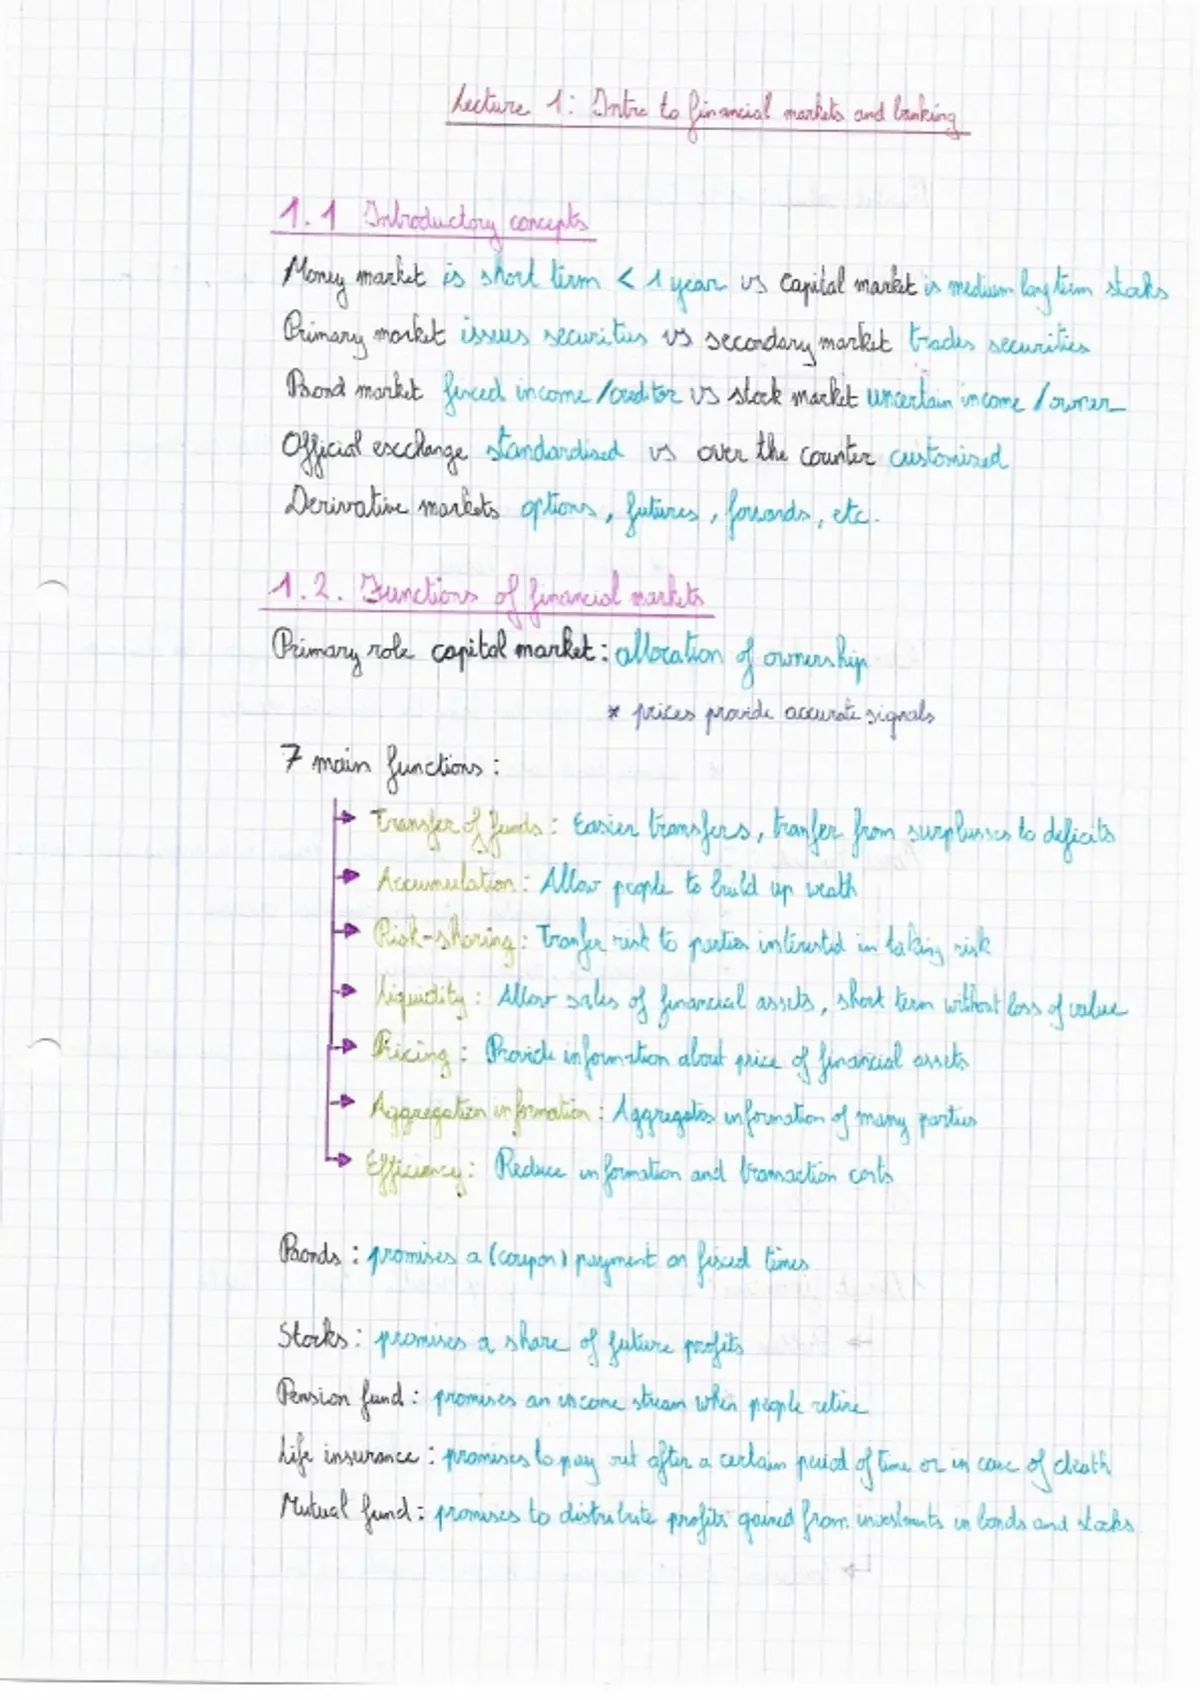 Lecture 1: Intro to financial markets and banking
1.1 Introductory concepts
Money market is short term < 1 year vs capital market is medium long term stocks
Primary market issues securities vs secondary market trades securities
Bond market fixed income / creditor vs stock market uncertain income / owner
Official exchange standardised vs over the counter customised
Derivative markets options, futures, forwards, etc.
1.2. Functions of financial markets
Primary role capital market: allocation of ownership
* prices provide accurate signals
7 main functions:
Transfer of funds: Easier transfers, tranfer from surplusses to deficits
Accumulation: Allow people to build up weath
Risk-sharing: Tranfer risk to parties interested in taking risk
Liquidity: Allow sales of financial assets, short term without loss of value
Pricing: Provide information about price of financial assets
Aggregation information: Aggregates information of many parties
Efficiency: Reduce information and transaction costs
Bonds: promises a (coupon) payment on fixed times
Stocks: promises a share of future profits
Pension fund: promises an income stream when people retire
Life insurance: promises to pay out after a certain period of time or in case of death
Mutual fund: promises to distribute profits gained from investments in bonds and stocks